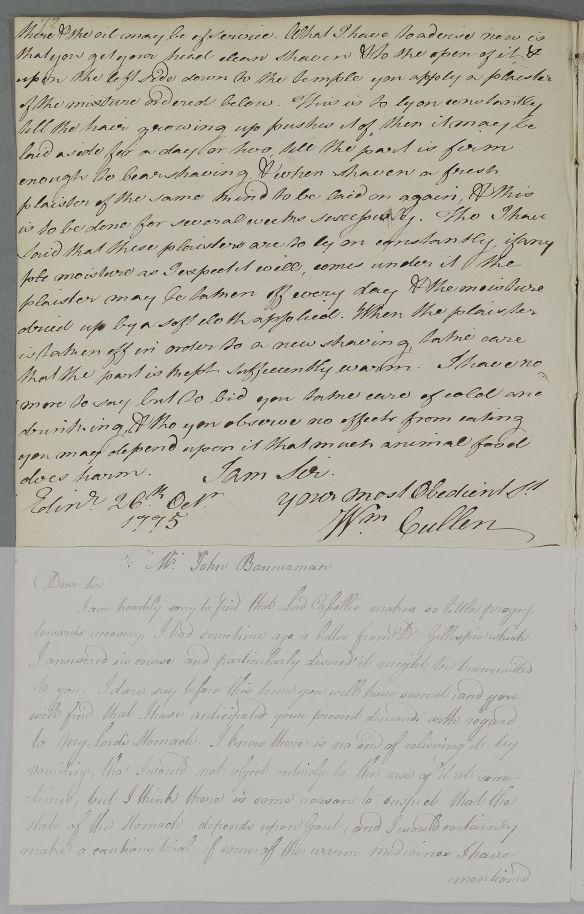 there & the oil may be of service. What I have to advise now is
that you get your head clean shaven & to the open of it, &
upon the left side down to the temple you apply a plaister
of the mixture ordered below. This is to ly on constantly
till the hair growing up pushes it of, then it may be
laid aside for a day or two, till the part is firm
enough to bear shaving, & when shaven a fresh
plaister of the same kind to be laid on again, & this
is to be done for several weeks successively. Tho I have
said that these plaisters are to ly on constantly, if any
moisture as I expect it will, comes under it the
plaister may be taken off every day & the moisture
dried up by a soft cloth applied. When the plaister
is taken off in order to a new shaving, take care
that the part is kept sufficiently warm. I have no
more to say but to bid you take care of cold and
drinking, & tho you observe no effects from eating
you may depend upon it that much animal food
does harm. I am Sir.
Edinr. 26th. Octr. your most Obedient St
1775 Wm Cullen
To Mr. John Bannerman
Dear Sir
I am heartily sorry to find that Lord Cassillis makes so little progress
towards recovery I had sometime ago a letter from Dr. Gillespie which
I answered in course and particularly desired it might be transmitted
to you. I dare say before this time you will have seen it, and you
will find that I have anticipated your present demands with regard
to My Lords Stomach. I know there is no end of relieving it by
vomiting, tho' I would not object entirely to the use of it at some-
times, but I think there is some reason to suspect that the
state of the Stomach depends upon Gout, and I would certainly
make a cautious trial of some of the warm medicines I have
mentioned